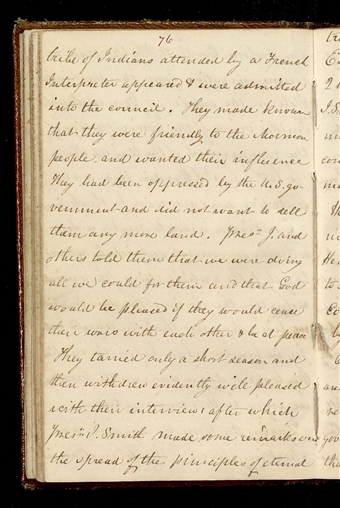 76
tribe of Indians attended by a French
Interpreter appeared & were admitted
into the council. They made known
that they were friendly to the Mormon
people and wanted their influence
They had been oppressed by the U.S. go-
vernment and did not want to sell
them any more land. Prest J. and
others told them that we were doing
all we could for them and that God
would be pleased if they would cease
their wars with each other & be at peace
They tarried only a short season and
then withdrew evidently well pleased
with their interview; after which
Prest J. Smith made some remarks over
the spread of the principles of eternal